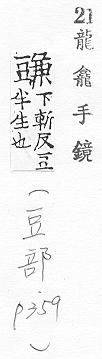 21 龍龕手鏡
豏 下斬反豆
半生也
(豆部 p359)